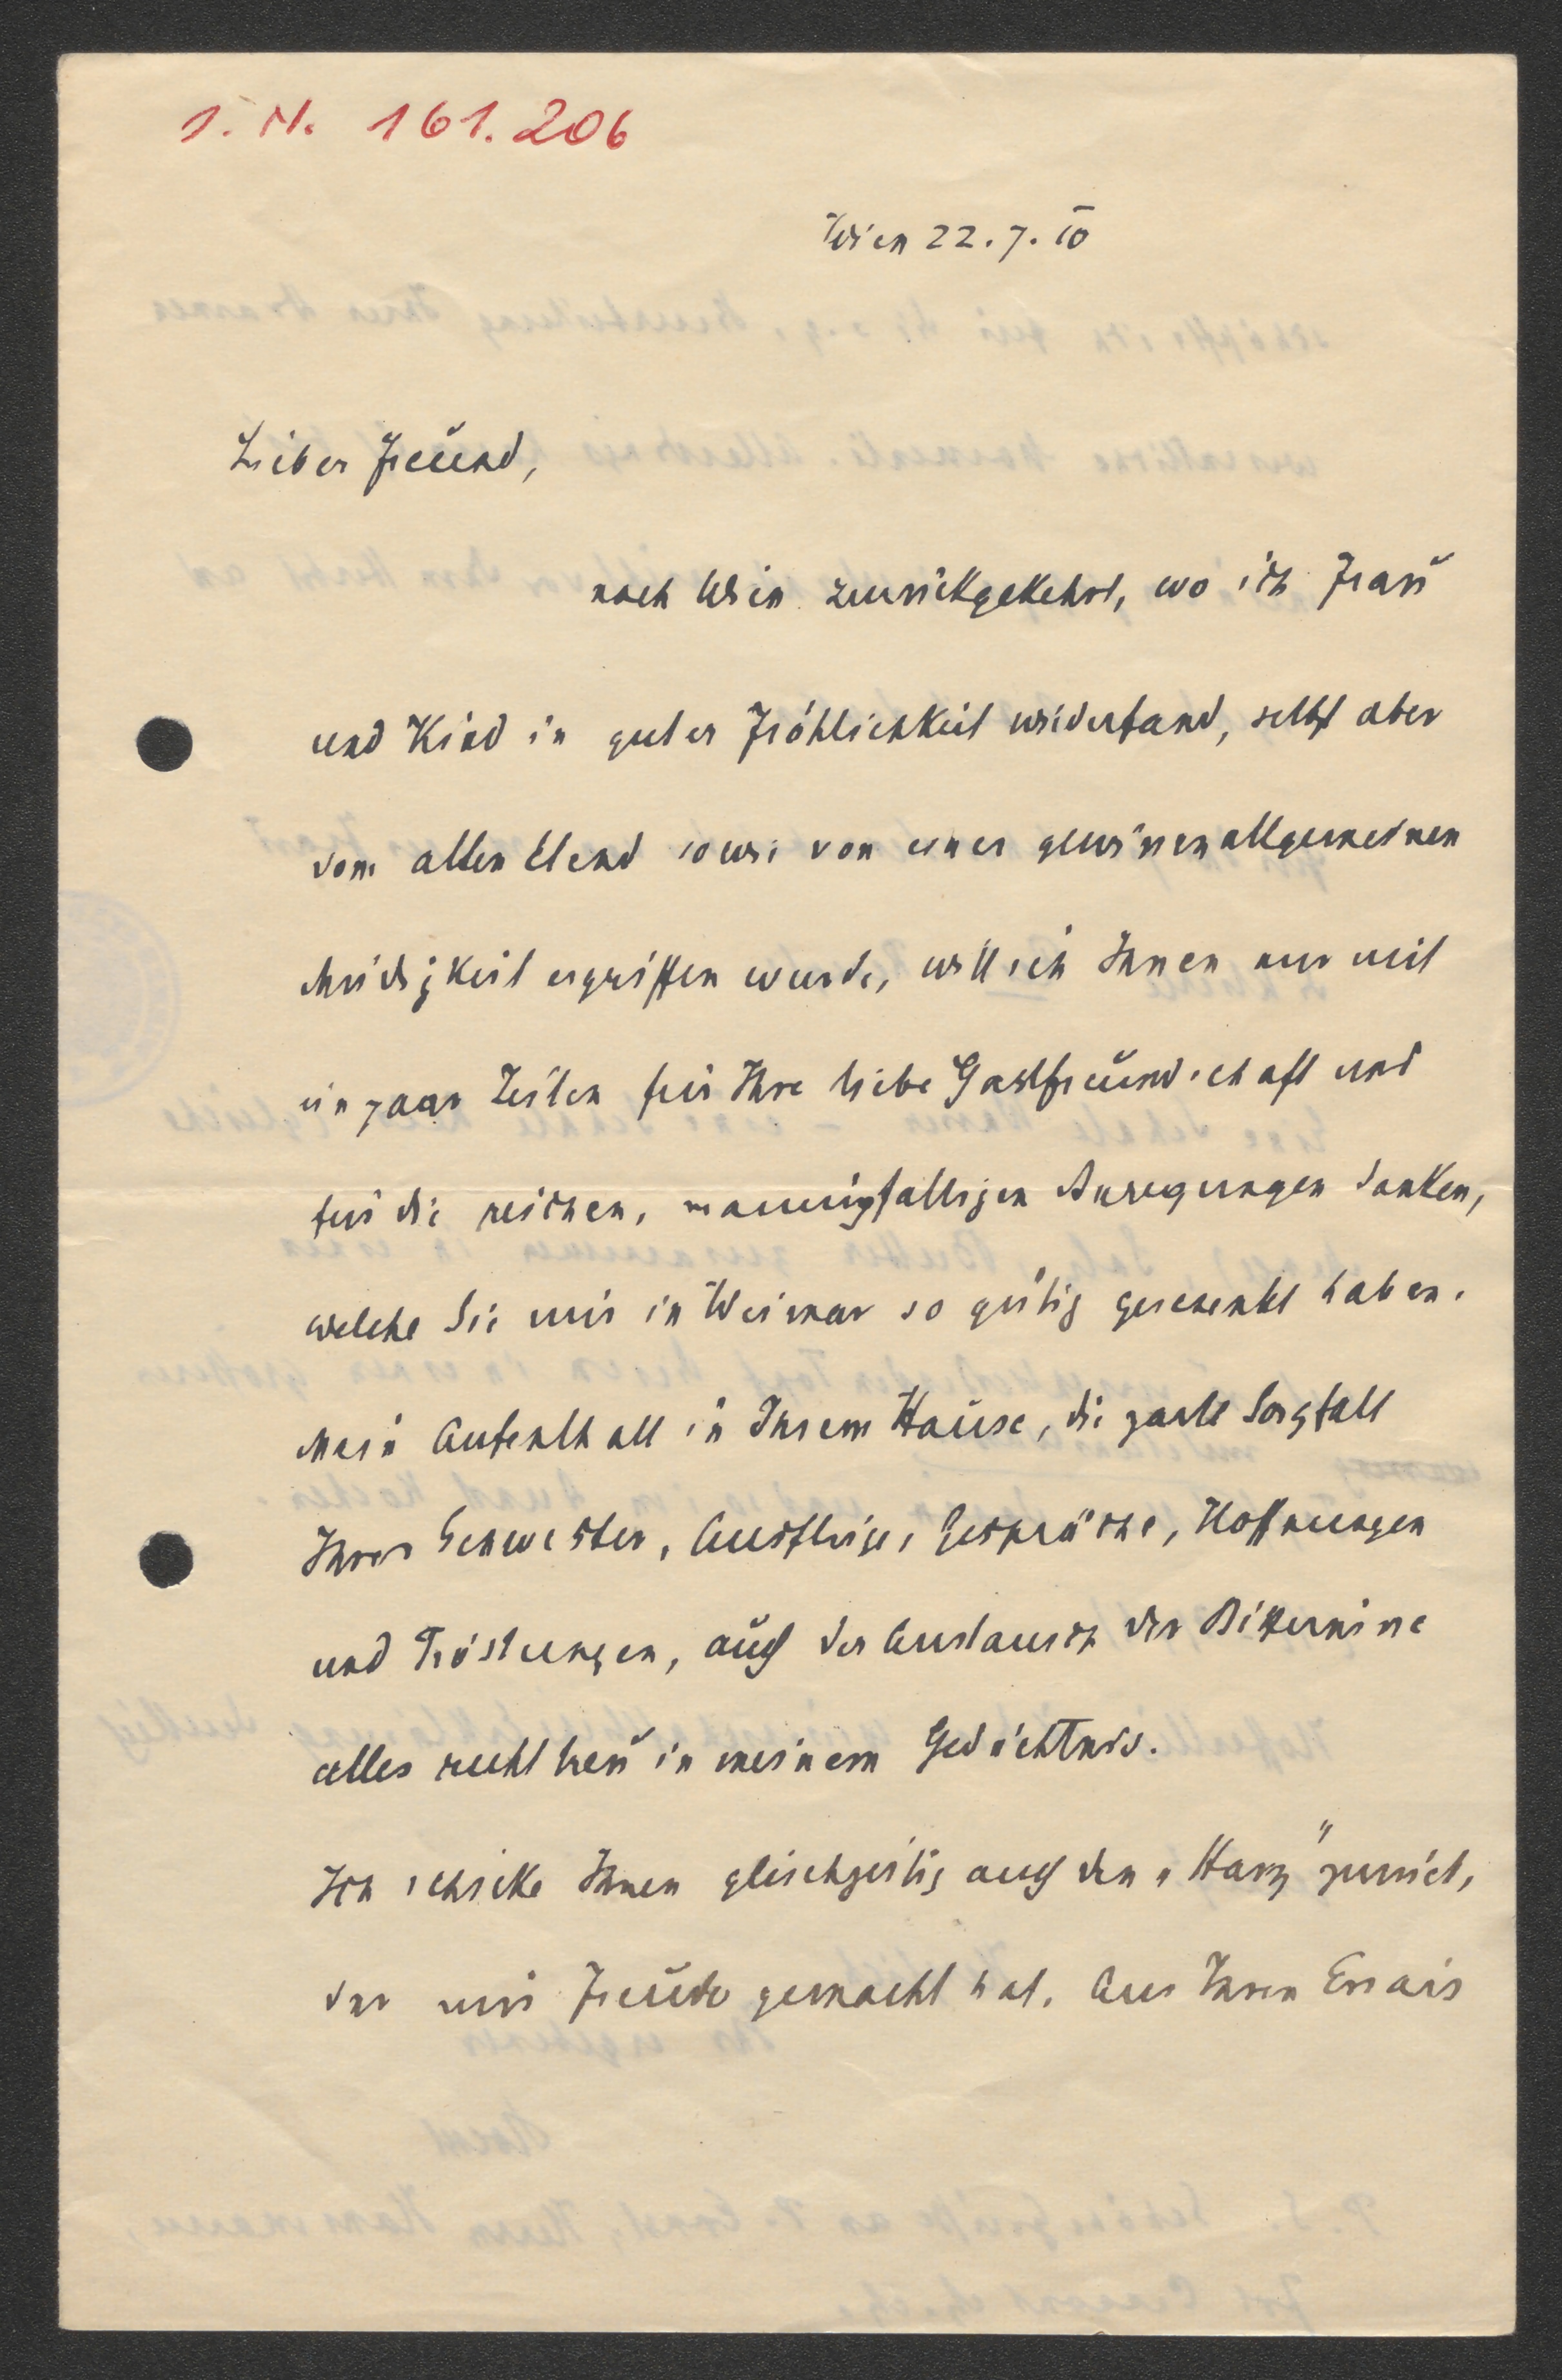 I. N. 161.206
Wien 22. 7. 10
Lieber Freund,
nach Wien zurückgekehrt, wo ich Frau
und Kind in guter Fröhlichkeit wiederfand, selbst aber
vom alten Elend sowie von einer gewissen allgemeinen
Müdigkeit ergriffen wurde, will ich Ihnen nur mit
ein paar Zeilen für Ihre liebe Gastfreundschaft und
für die reichen, mannigfaltigen Anregungen danken,
welche Sie mir in Weimar so gütig geschenkt haben.
Mein Aufenthalt in Ihrem Hause, die zarte Sorgfalt
Ihrer Schwester, Ausflüge, Gespräche, Hoffnungen
und Tröstungen, auch der Austausch der Bitternisse
alles ruht treu in meinem Gedächtnis.
Ich schicke Ihnen gleichzeitig auch den „Harz" zurück,
der mir Freude gemacht hat. Aus Ihren Essais